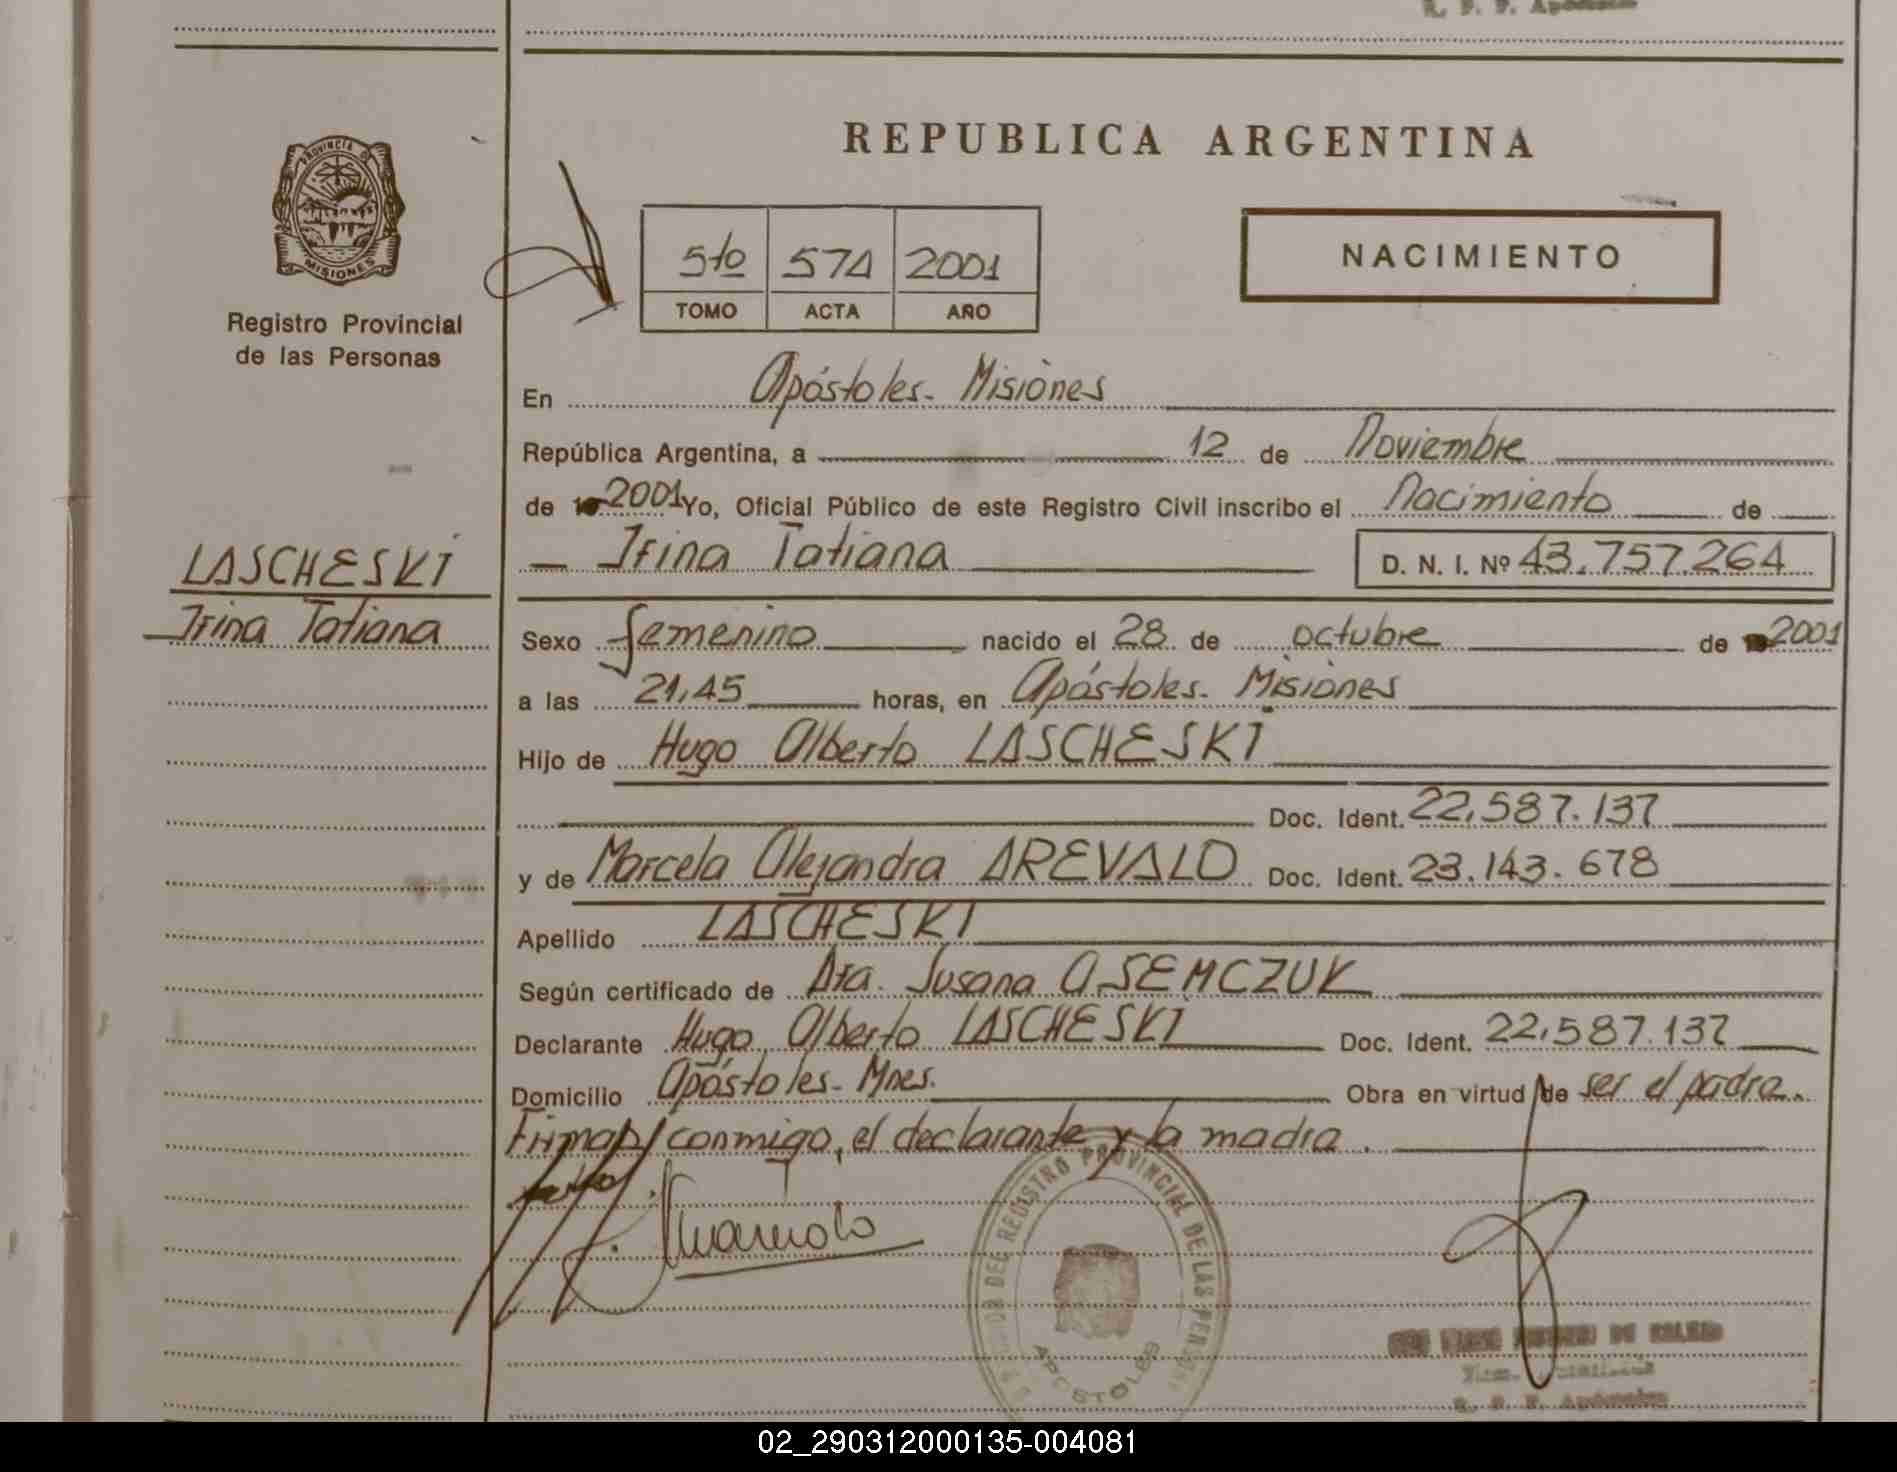 R. P. P. Apóstoles
REPUBLICA ARGENTINA
PROVINCIA DE
MISIONES
Registro Provincial
de las Personas
5to 574 2001
TOMO ACTA AÑO
NACIMIENTO
En Apóstoles - Misiones
República Argentina, a 12 de Noviembre
de 2001 Yo, Oficial Público de este Registro Civil inscribo el Nacimiento de
Irina Tatiana D. N. I. Nº 43.757.264
LASCHESKI
Irina Tatiana
Sexo femenino nacido el 28 de octubre de 2001
a las 21,45 horas, en Apóstoles - Misiones
Hijo de Hugo Alberto LASCHESKI
Doc. Ident. 22.587.137
y de Marcela Alejandra AREVALO Doc. Ident. 23.143.678
Apellido LASCHESKI
Según certificado de Dra. Susana A. SEMCZUK
Declarante Hugo Alberto LASCHESKI Doc. Ident. 22.587.137
Domicilio Apóstoles - Mnes. Obra en virtud de ser el padre.
Firman conmigo, el declarante y la madre.
DEL REGISTRO PROVINCIAL DE LAS PERSONAS
APOSTOLES
R. P. P. Apóstoles
02_290312000135-004081